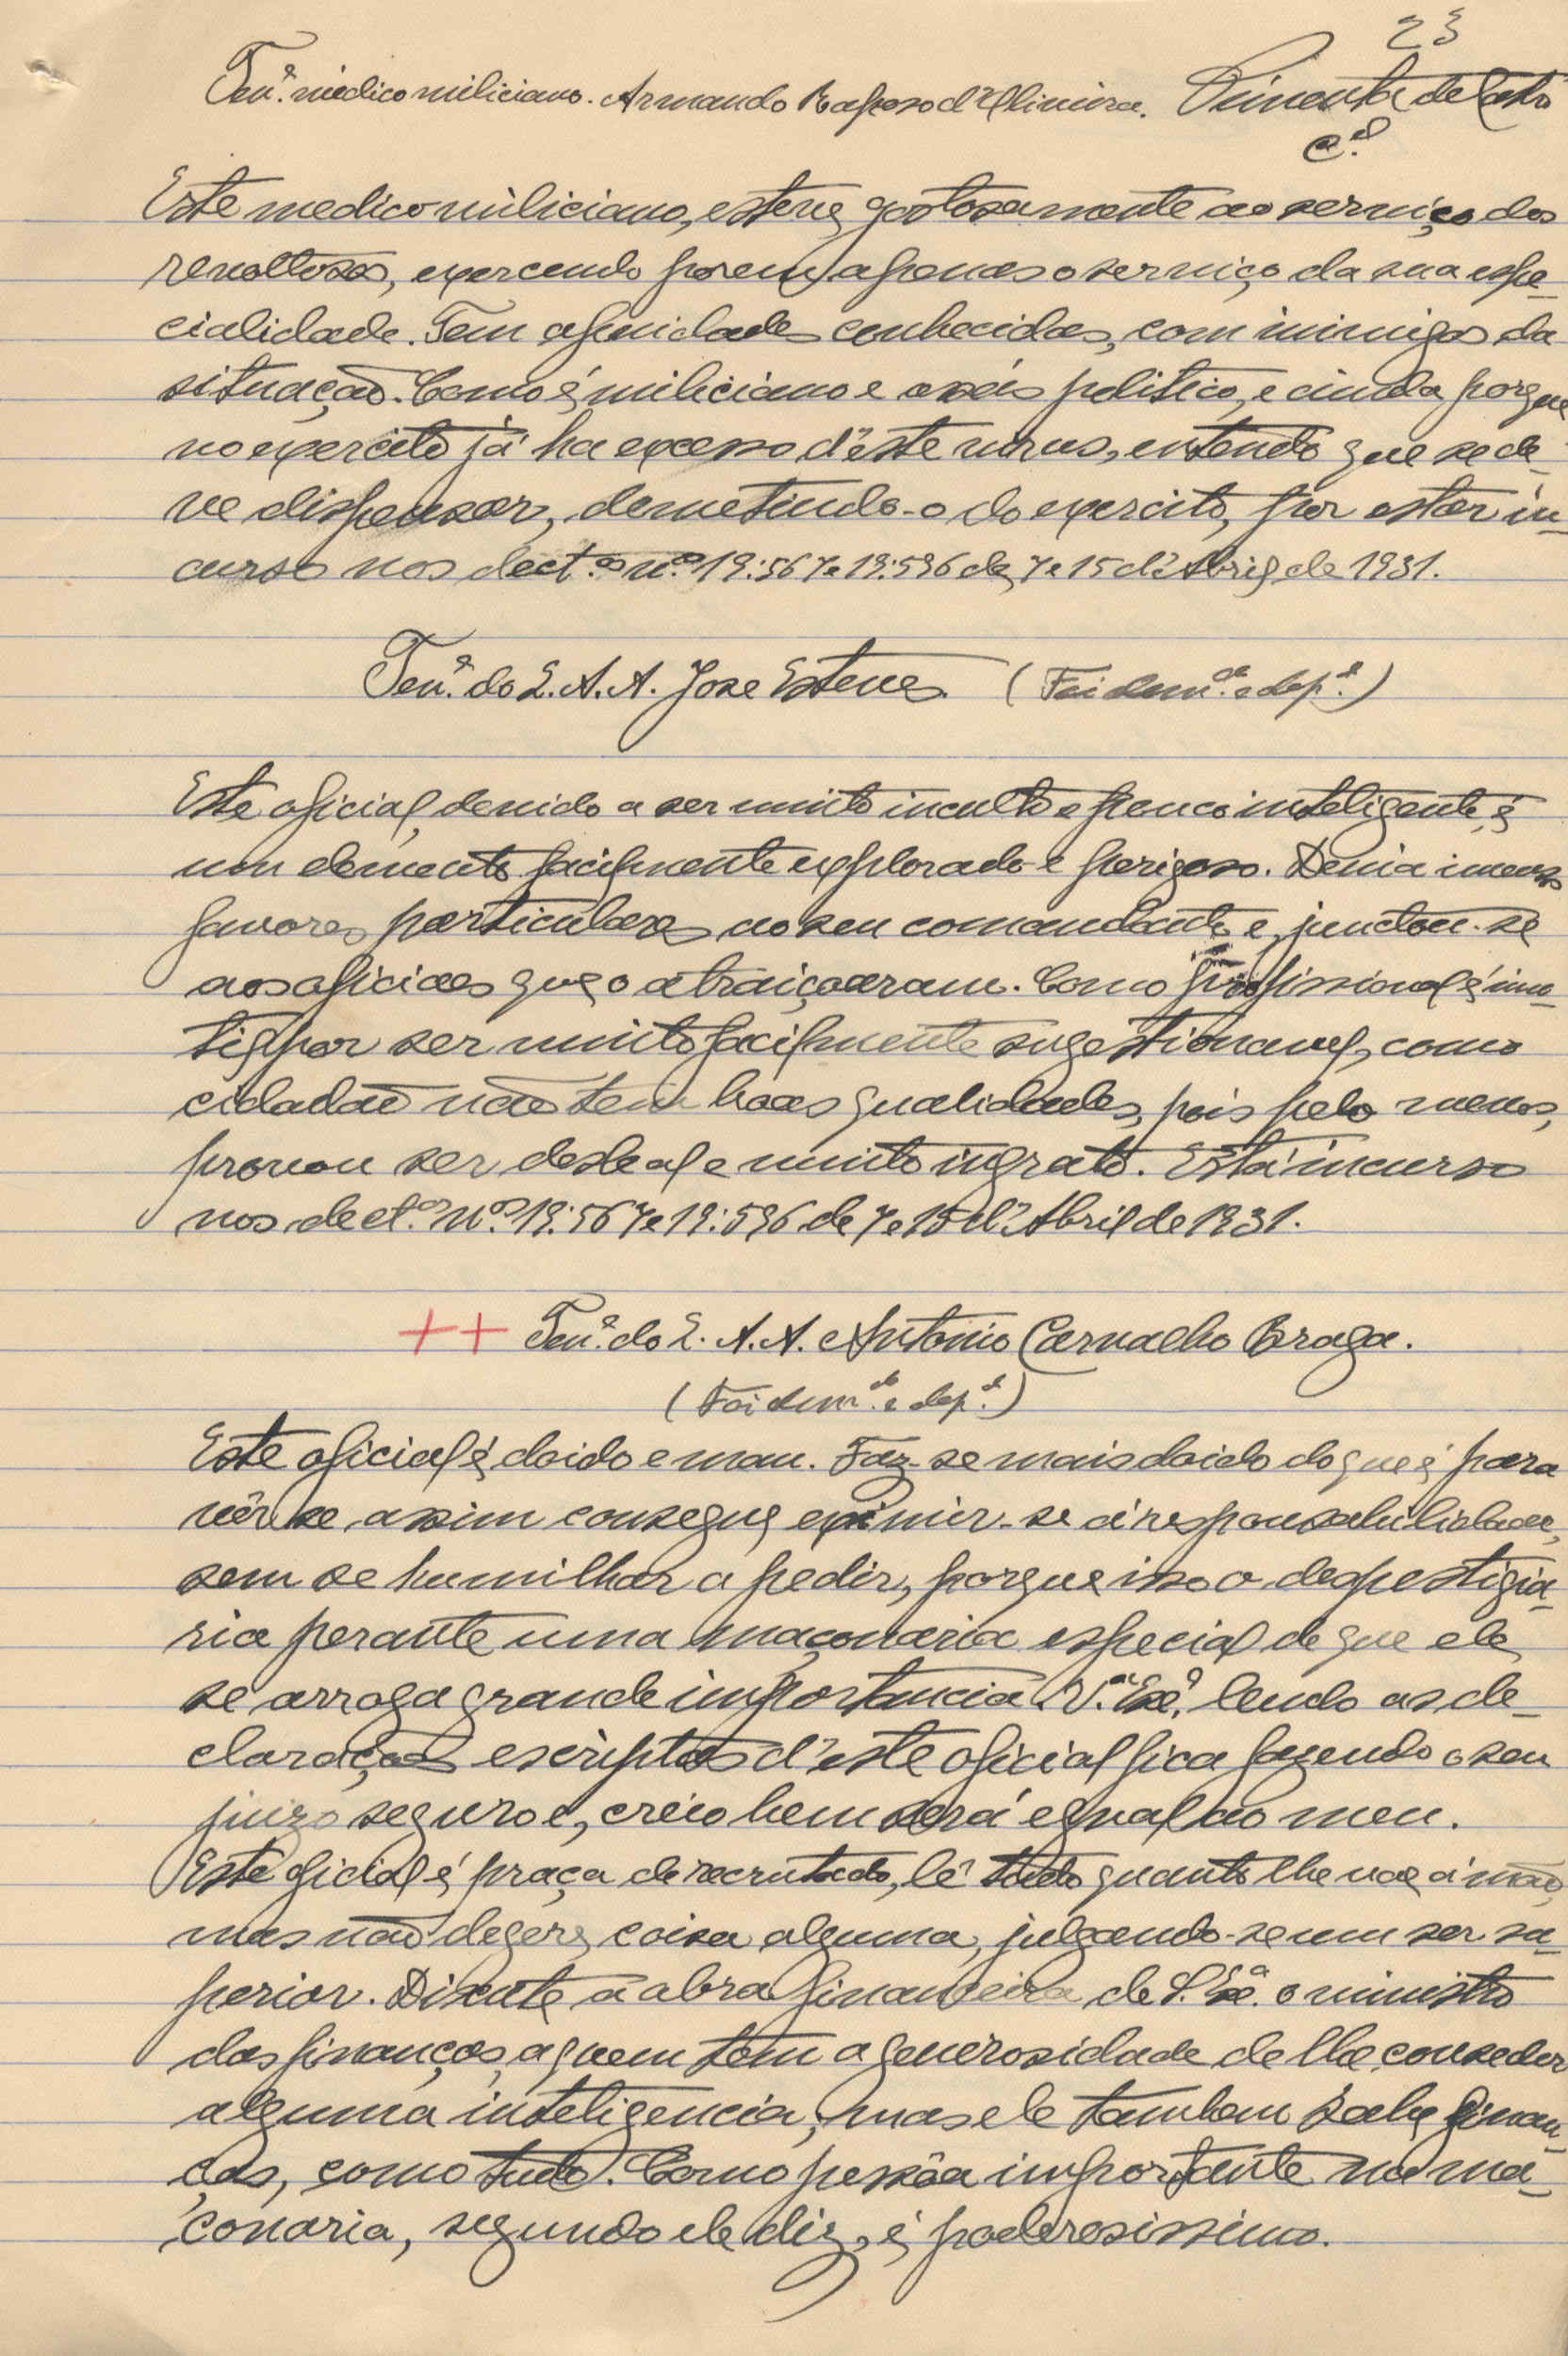 23
Ten.e médico miliciano. Armando Raposo d'Oliveira. Pimenta de Castro
C.el
Este medico miliciano, esteve gostosamente ao serviço dos
revoltosos, exercendo porem apenas o serviço da sua espe-
cialidade. Tem afinidades conhecidas, com inimigos da
situação. Como é miliciano e mais politico, e ainda porque
no exercito já ha excesso d'éste virus, entendo que se de-
ve dispensar, demetindo-o do exercito, por estar in-
curso nos dect.os n.os 19:567 e 19:596 de 7 e 15 d'Abril de 1931.
Ten.e do Q. A. A. Jose Esteves (Foi dem.do e dep.do)
Este oficial, devido a ser muito inculto e pouco inteligente, é
um elemento facilmente explorado e perigoso. Devia imensos
favores particulares ao seu comandante e, junctou-se
aos oficiaes que o atraiçoaram. Como profissional é inu-
til, por ser muito facilmente sugestionavel, como
cidadão não tem boas qualidades, pois pelo menos,
provou ser desleal e muito ingrato. Está incurso
nos dect.os n.os 19:567 e 19:596 de 7 e 15 d'Abril de 1931.
++ Ten.e do Q. A. A. Antonio Carvalho Braga.
(Foi dem.do e dep.do)
Este oficial é doido e mau. Faz-se mais doido do que é para
vêr se assim consegue eximir-se á responsabilidade,
sem se humilhar a pedir, porque isso o despestigia-
ria perante uma maçonaria especial de que ele
se arroga grande importancia. V.ª Ex.ª lendo as de-
clarações escriptas d'este oficial fica fazendo o seu
juizo seguro e, creio bem será egual ao meu.
Este oficial é praça de recrutado, lê tudo quanto lhe vae á mão,
mas não degere coisa alguma, julgando-se um ser su-
perior. Discute a obra financeira de S. Ex.ª o ministro
das finanças, a quem tem a generosidade de lhe conseder
alguma inteligencia, mas ele tambem sabe finan-
ças, como tudo. Como pessôa importante na ma-
çonaria, segundo ele diz, é poderosissimo.